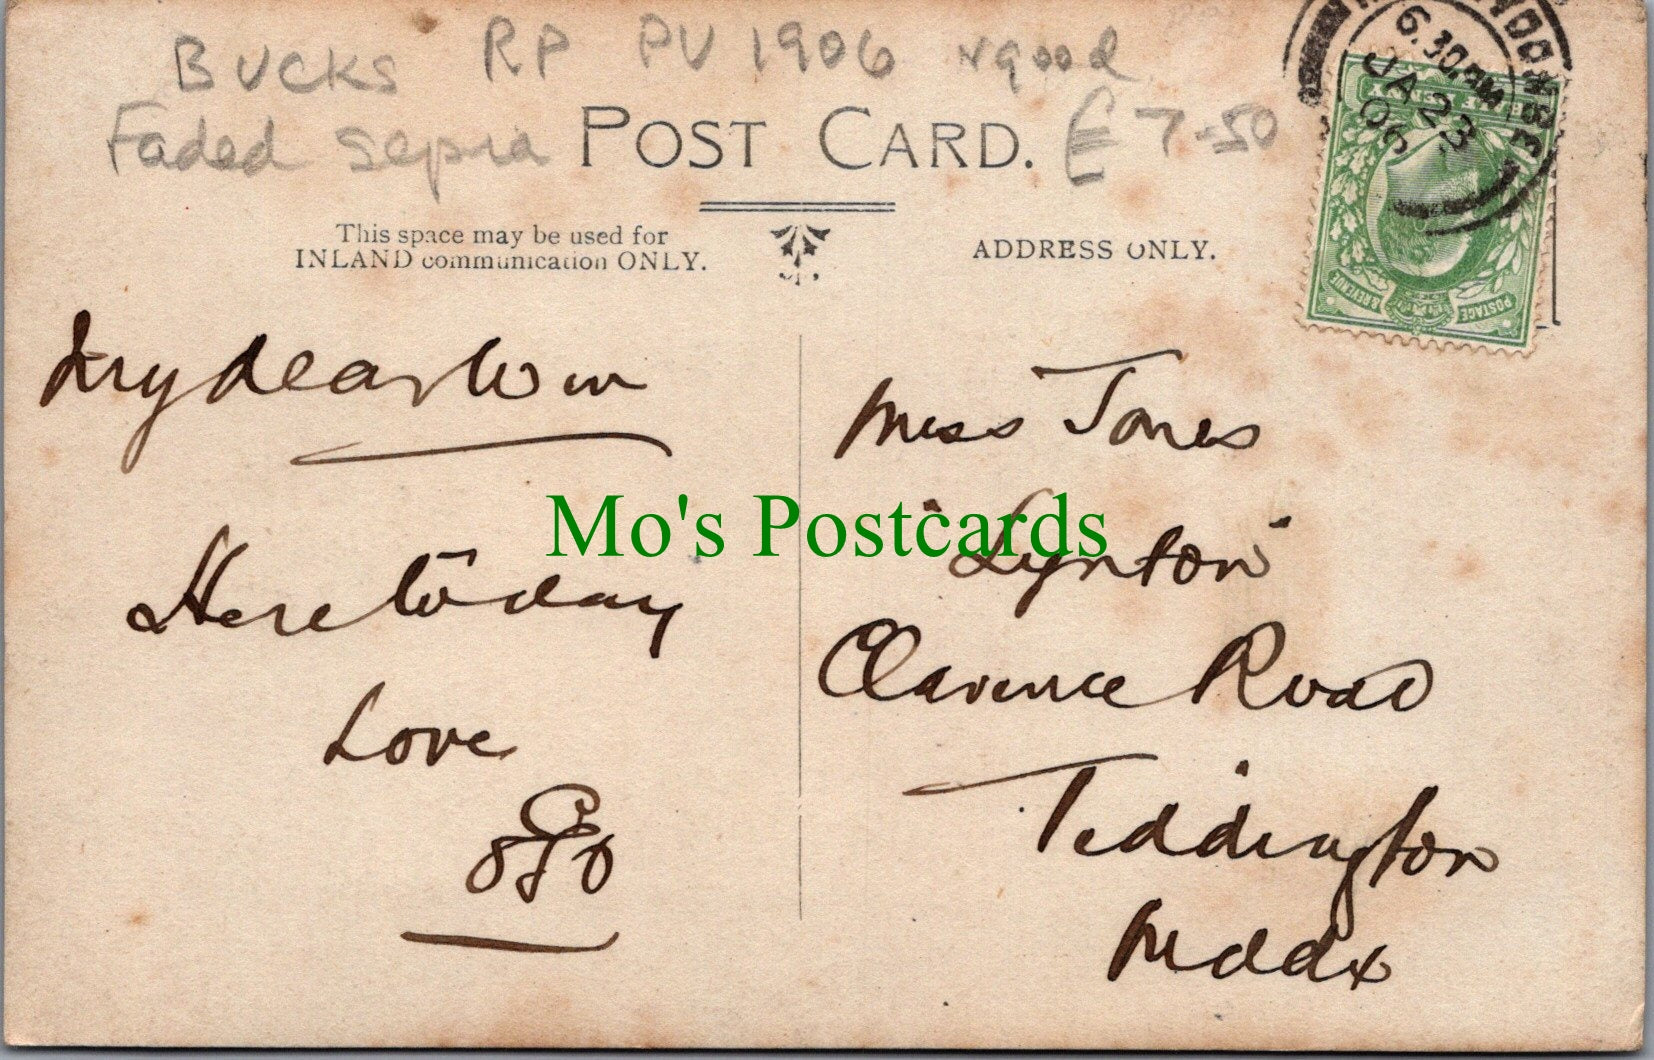 BUCKS RP PU 1906 vgood
Faded sepia £7-50
POST CARD.
This space may be used for
INLAND communication ONLY.
ADDRESS ONLY.
6.30 PM
JA 23
06
POSTAGE & REVENUE
My dear Win
Here to day
Love
Miss Jones
"Lynton"
Clarence Road
Teddington
Middx
Mo's Postcards